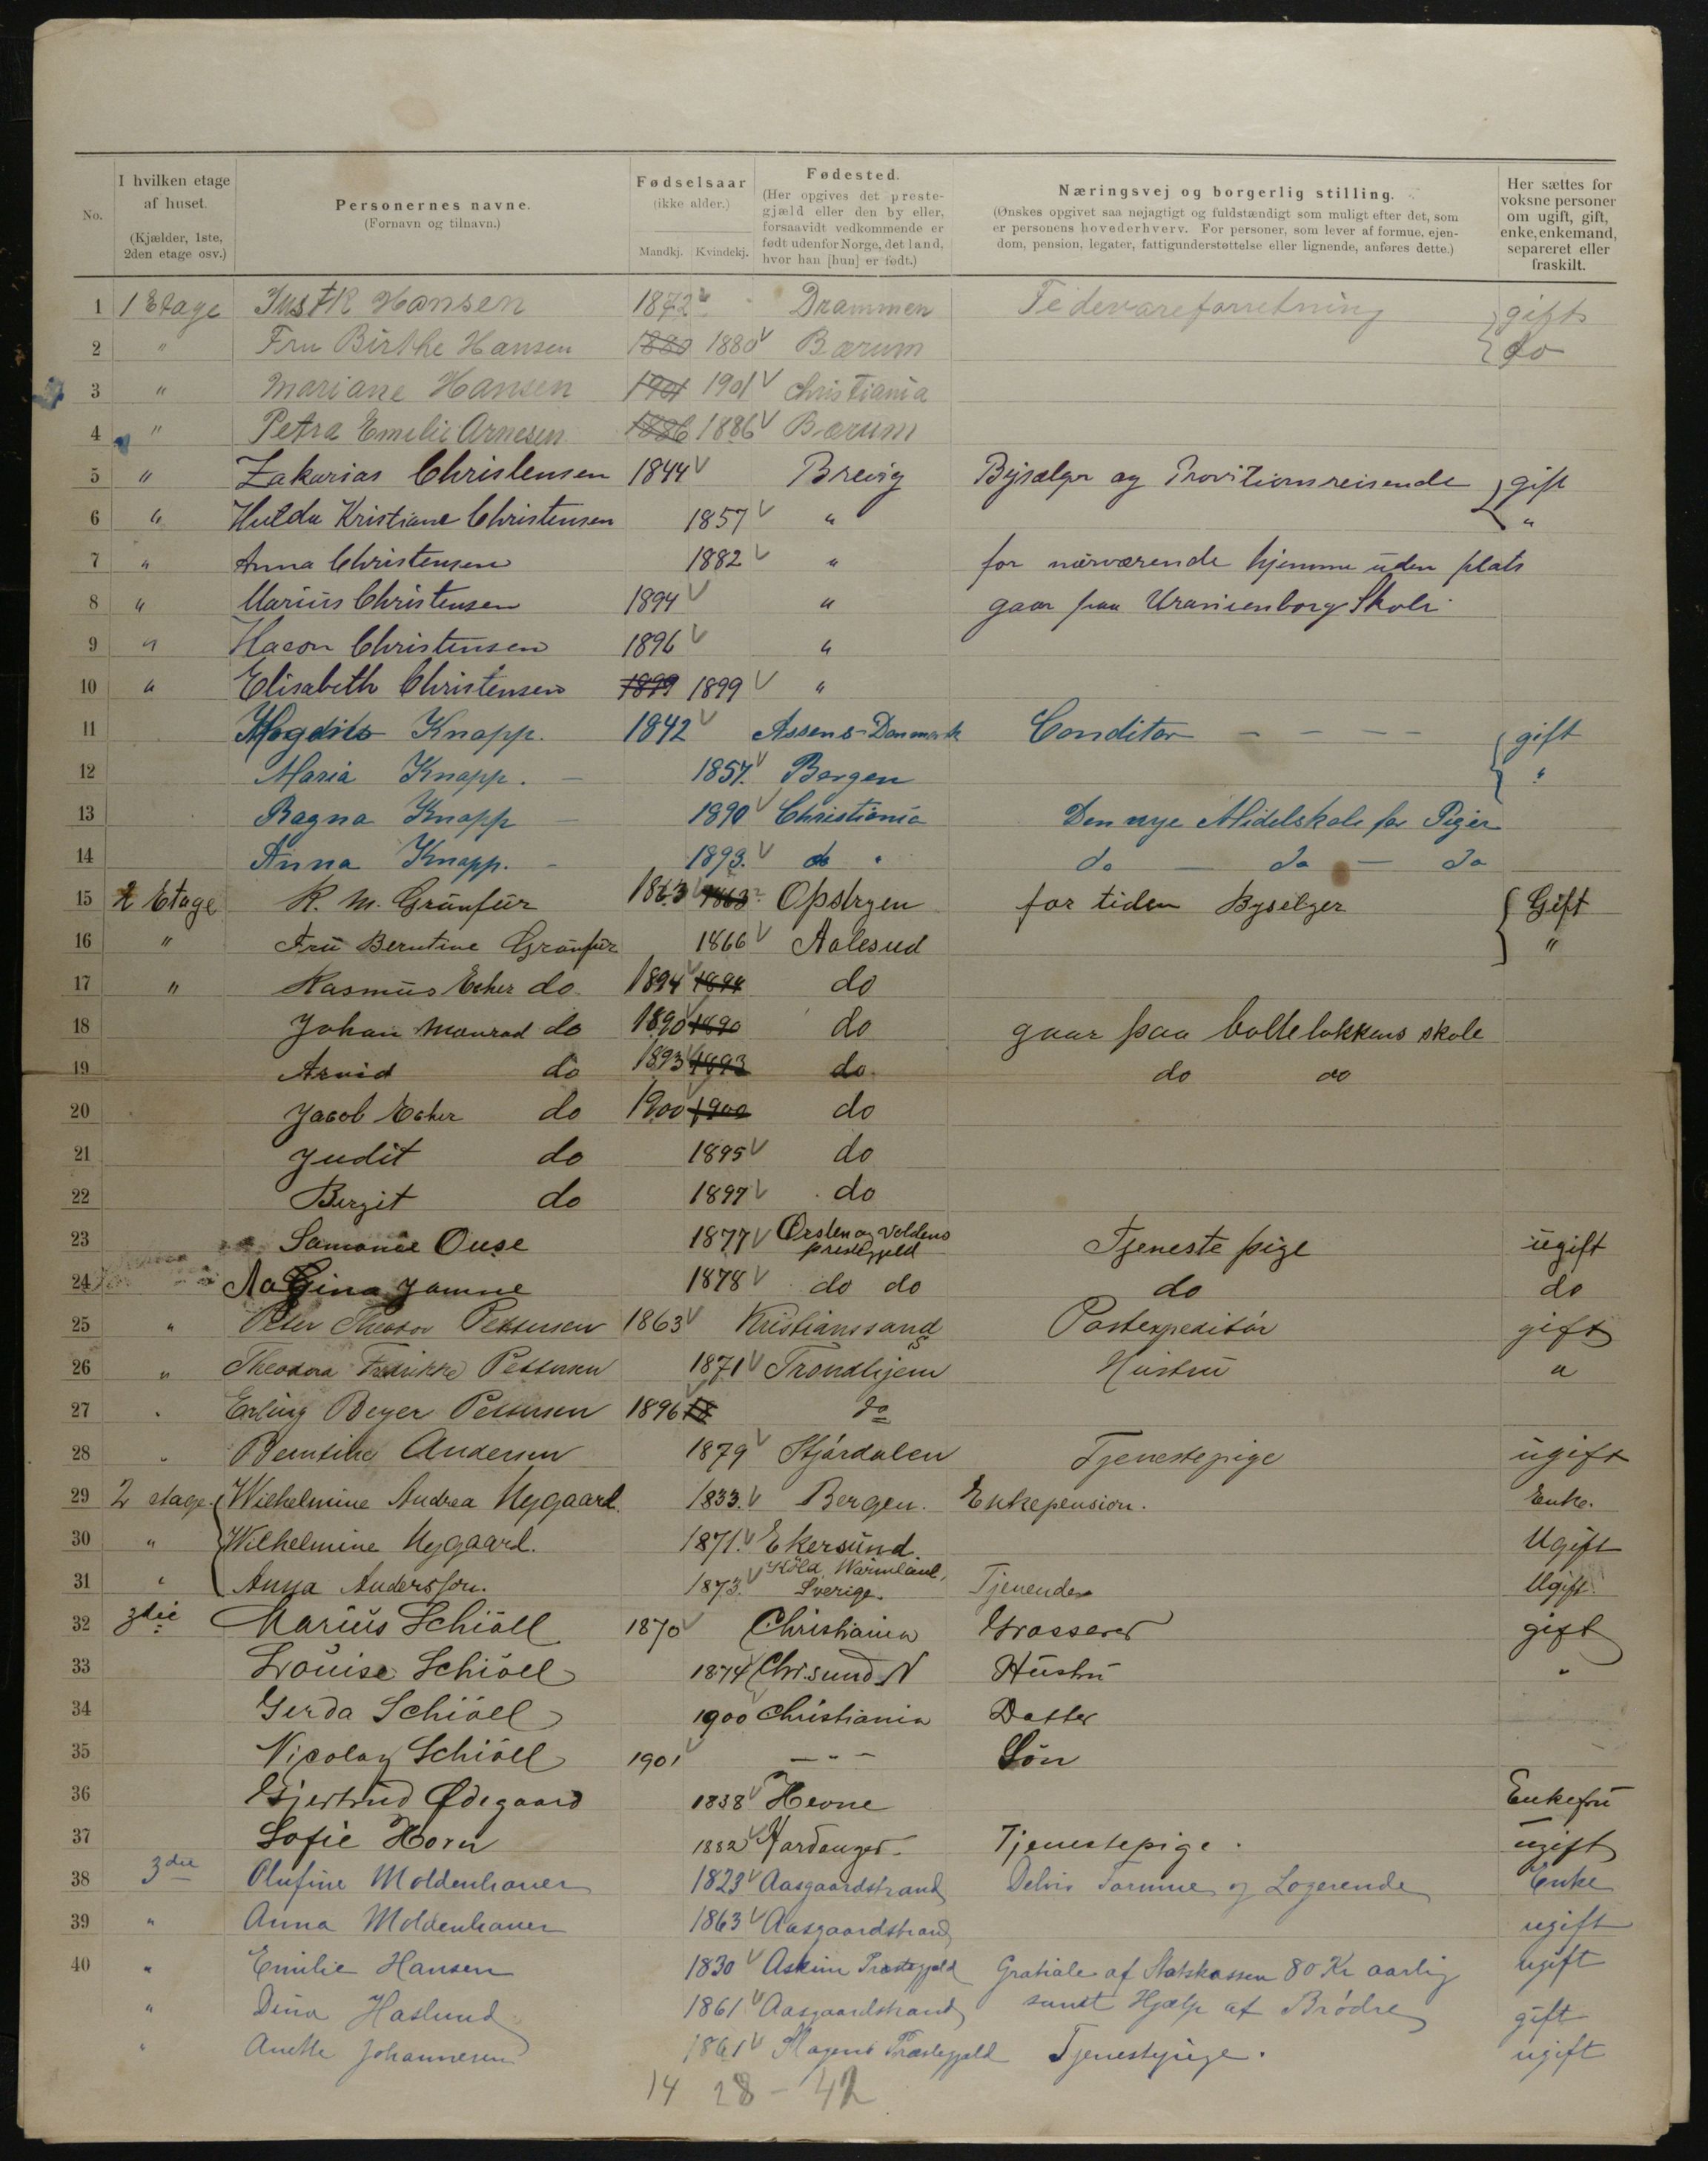 No.
I hvilken etage
af huset.
(Kjælder, 1ste,
2den etage osv.)
Personernes navne.
(Fornavn og tilnavn.)
Fødselsaar
(ikke alder.)
Mandkj. Kvindekj.
Fødested.
(Her opgives det preste-
gjæld eller den by eller,
forsaavidt vedkommende er
født udenfor Norge, det land,
hvor han [hun] er født.)
Næringsvej og borgerlig stilling.
(Ønskes opgivet saa nøjagtigt og fuldstændigt som muligt efter det, som
er personens hovederhverv. For personer, som lever af formue, ejen-
dom, pension, legater, fattigunderstøttelse eller lignende, anføres dette.)
Her sættes for
voksne personer
om ugift, gift,
enke, enkemand,
separeret eller
fraskilt.
1 1 Etage Just R Hansen 1872 Drammen Fedevareforretning gift
2 " Fru Birthe Hansen 1880 1880 Bærum do
3 " Mariane Hansen 1901 1901 Christiania
4 " Petra Emelie Arnesen 1886 1886 Bærum
5 " Zakarias Christensen 1844 Brevig Bysælger og Provitionsreisende gift
6 " Hulda Kristiane Christensen 1857 " "
7 " Anna Christensen 1882 " for nærværende hjemme uden plats
8 " Marius Christensen 1894 " gaar paa Uranienborg Skole
9 " Hacon Christensen 1896 "
10 " Elisabeth Christensen 1899 1899 "
11 Knapp. 1842 Assens - Danmark Conditor - - - - gift
12 Maria Knapp. - 1857. Bergen "
13 Ragna Knapp - 1890 Christiania Den nye Midelskole for Piger
14 Anna Knapp. - 1893. do " do - do - do
15 2 Etage R. M. Grünfür 1863 1863 Opstryen for tiden Byselger Gift
16 " Frü Berntine Grünfür 1866 Aalesud "
17 " Rasmüs Esker do 1894 1894 do
18 Johan Monrad do 1890 1890 do gaar paa bolteløkkens skole
19 Arvid do 1893 1893 do do do
20 Jacob Esker do 1900 1900 do
21 Judit do 1895 do
22 Bergit do 1897 do
23 Samonæ Ouse 1877 Ørsten og Voldens prestegjeld Tjeneste pige ugift
24 Gina Jamne 1878 do do do do
25 " Peter Theodor Pettersen 1863 Kristianssand S Postexpeditør gift
26 " Theodora Fredrikke Pettersen 1871 Trondhjem Hustru "
27 " Erling Beyer Pettersen 1896 18 do
28 " Berntine Andersen 1879 Stjørdalen Tjenestepige ugift
29 2 etage. Wilhelmine Andrea Nygaard. 1833. Bergen. Enkepension. Enke.
30 " Wilhelmine Nygaard. 1871. Ekersund Ugift
31 " Anna Andersson. 1873. Köld, Wärmland, Sverige. Tjenende Ugift.
32 3die Marius Schiöll 1870 Christiania Grosserer gift
33 Lovise Schiöll 1874 Chr.sund N Hustru "
34 Gerda Schiöll 1900 Christiania Datter
35 Nicolay Schiöll 1901 - " - Søn
36 Gjertrud Ødegaard 1838 Hevne Enkefru
37 Sofie Horn 1882 Hardanger Tjenestepige. ugift
38 3die Olufine Moldenhauer 1823 Aasgaardstrand Delvis Formue og Logerende Enke
39 " Anna Moldenhauer 1863 Aasgaardstrand ugift
40 " Emilie Hansen 1830 Askim Præstegjeld Gratiale af Statskassen 80 Kr aarlig ugift
" Dina Haslund 1861 Aasgaardstrand samt Hjælp af Brødre gift
" Anette Johannesen 1861 Slagens Præstegjeld Tjenestepige. ugift
14 28 - 42